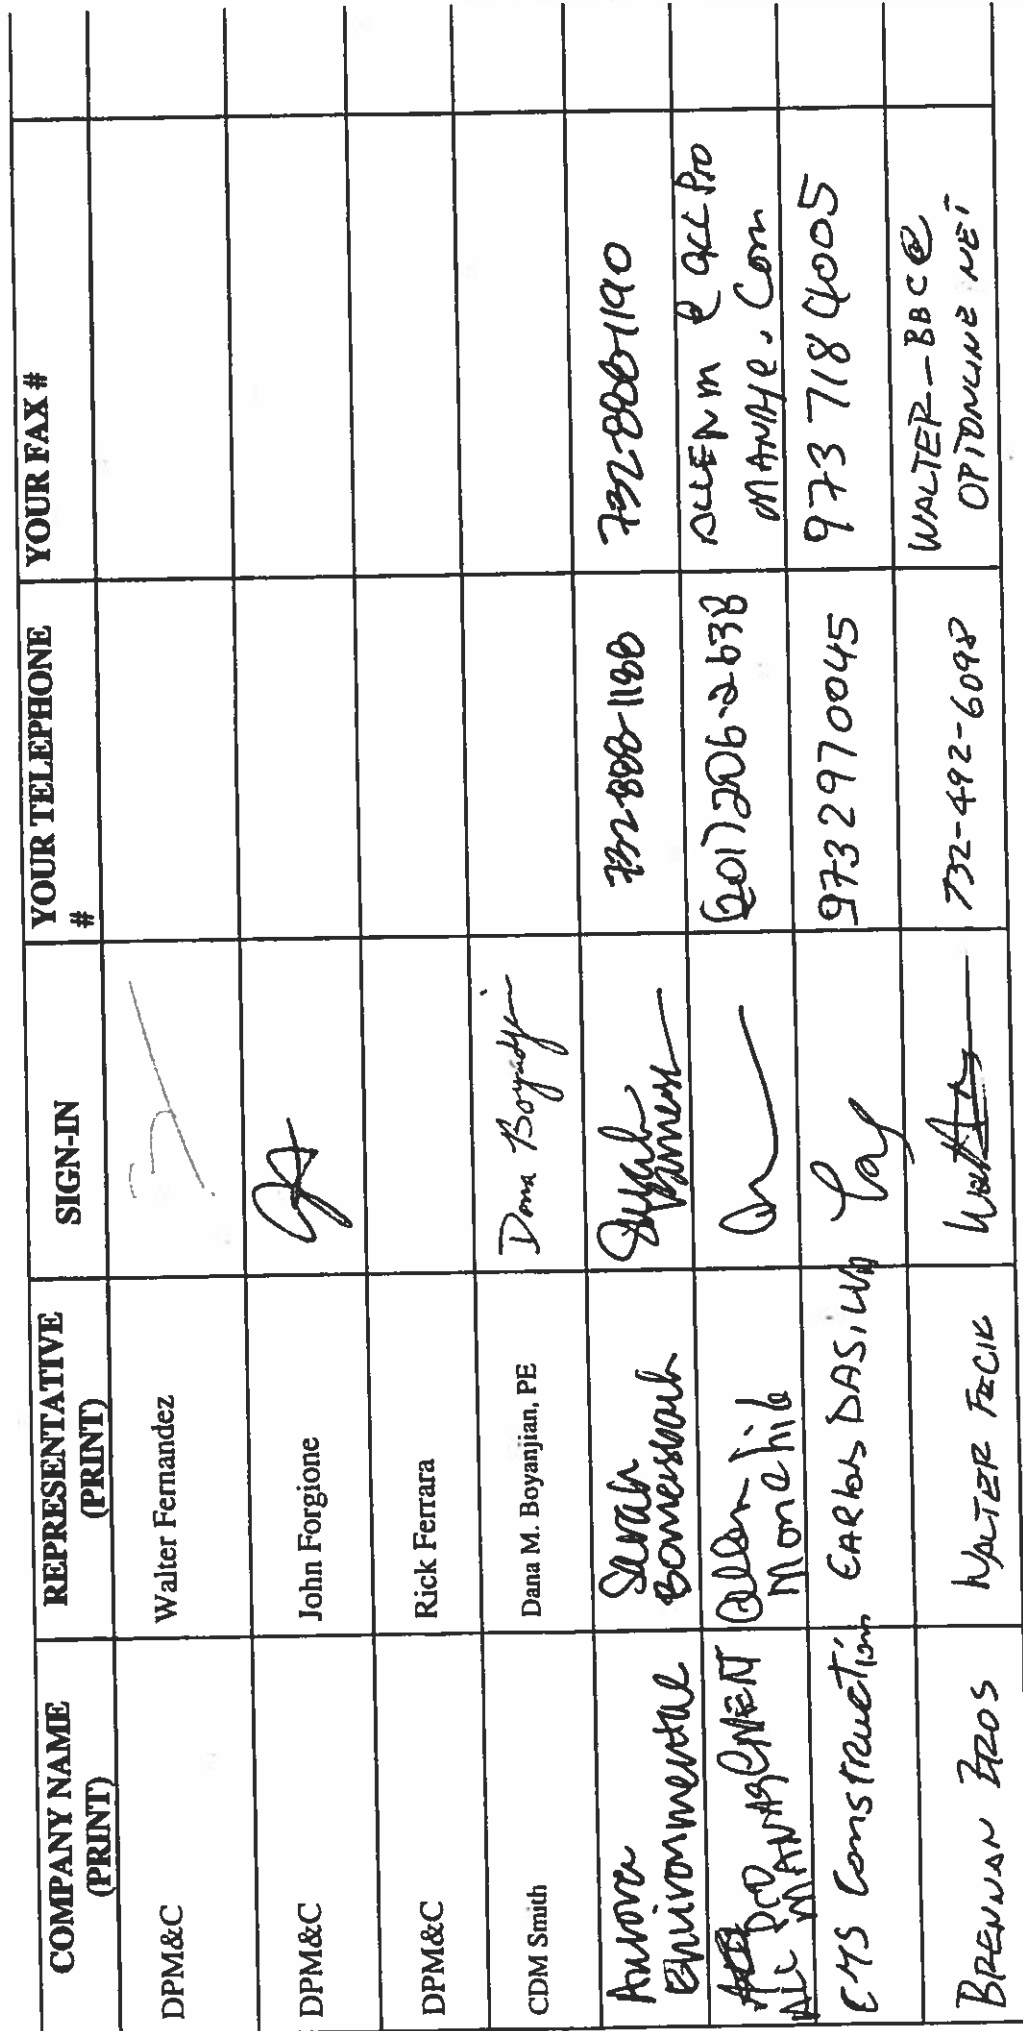 COMPANY NAME (PRINT) REPRESENTATIVE (PRINT) SIGN-IN YOUR TELEPHONE # YOUR FAX #
DPM&C Walter Fernandez
DPM&C John Forgione
DPM&C Rick Ferrara
CDM Smith Dana M. Boyanjian, PE Dana Boyadji
Aurora Environmental Sarah 732-888-1188 732-888-1190
All Pro MANAGEMENT Allen Monchil (201)206-2638 ALLEN M @ all Pro MANAge.Com
EMS Construction CARLOS DASILVA 973 297 0045 973 718 4005
BRENNAN BROS WALTER FECIK 732-492-6098 WALTER-BBC@ OPTONLINE.NET